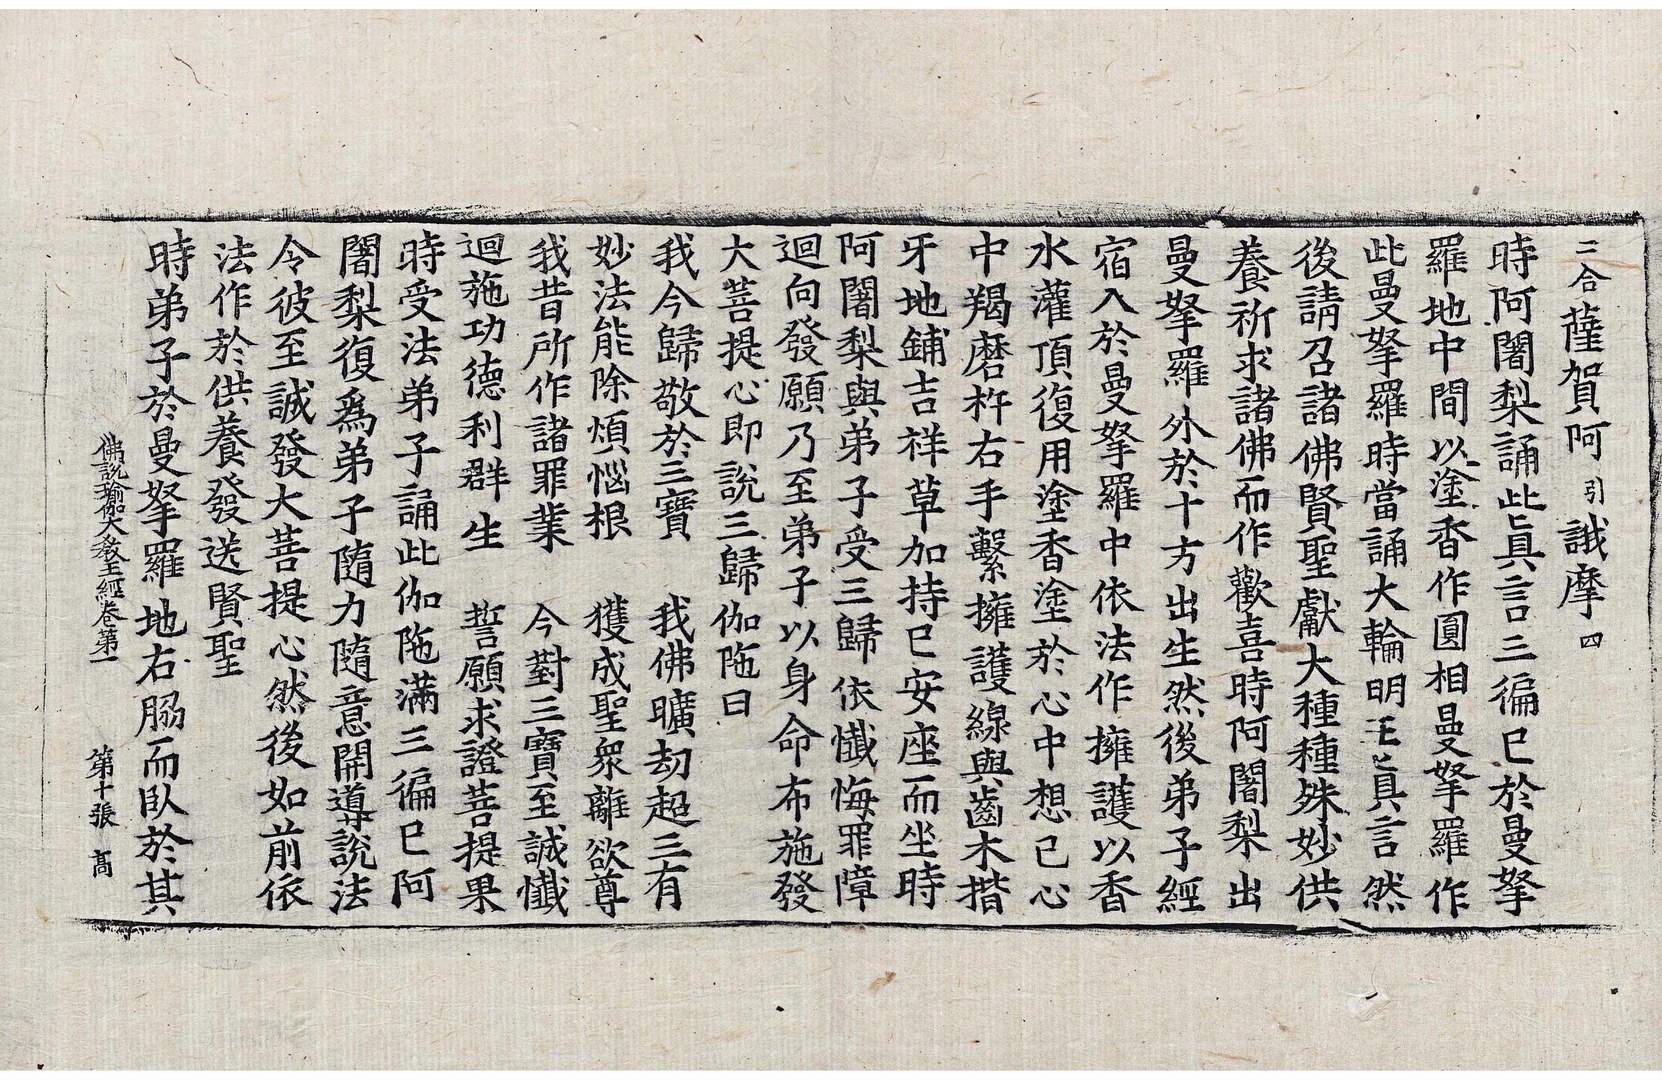 二合薩賀阿引誐摩四
時阿闍梨誦此眞言三徧已於曼拏
羅地中間以塗香作圓相曼拏羅作
此曼拏羅時當誦大輪明王眞言然
後請召諸佛賢聖獻大種種殊妙供
養祈求諸佛而作歡喜時阿闍梨出
曼拏羅外於十方出生然後弟子經
宿入於曼拏羅中依法作擁護以香
水灌頂復用塗香塗於心中想已心
中羯磨杵右手繫擁護線與齒木揩
牙地鋪吉祥草加持已安座而坐時
阿闍梨與弟子受三歸依懺悔罪障
迴向發願乃至弟子以身命布施發
大菩提心即說三歸伽陁曰
我今歸敬於三寶　我佛曠劫超三有
妙法能除煩惱根　獲成聖衆離欲尊
我昔所作諸罪業　今對三寶至誠懺
迴施功德利群生　誓願求證菩提果
時受法弟子誦此伽陁滿三徧已阿
闍梨復爲弟子隨力隨意開導說法
令彼至誠發大菩提心然後如前依
法作於供養發送賢聖
時弟子於曼拏羅地右脇而臥於其
佛說瑜伽大教王經卷第一　第十張　髙